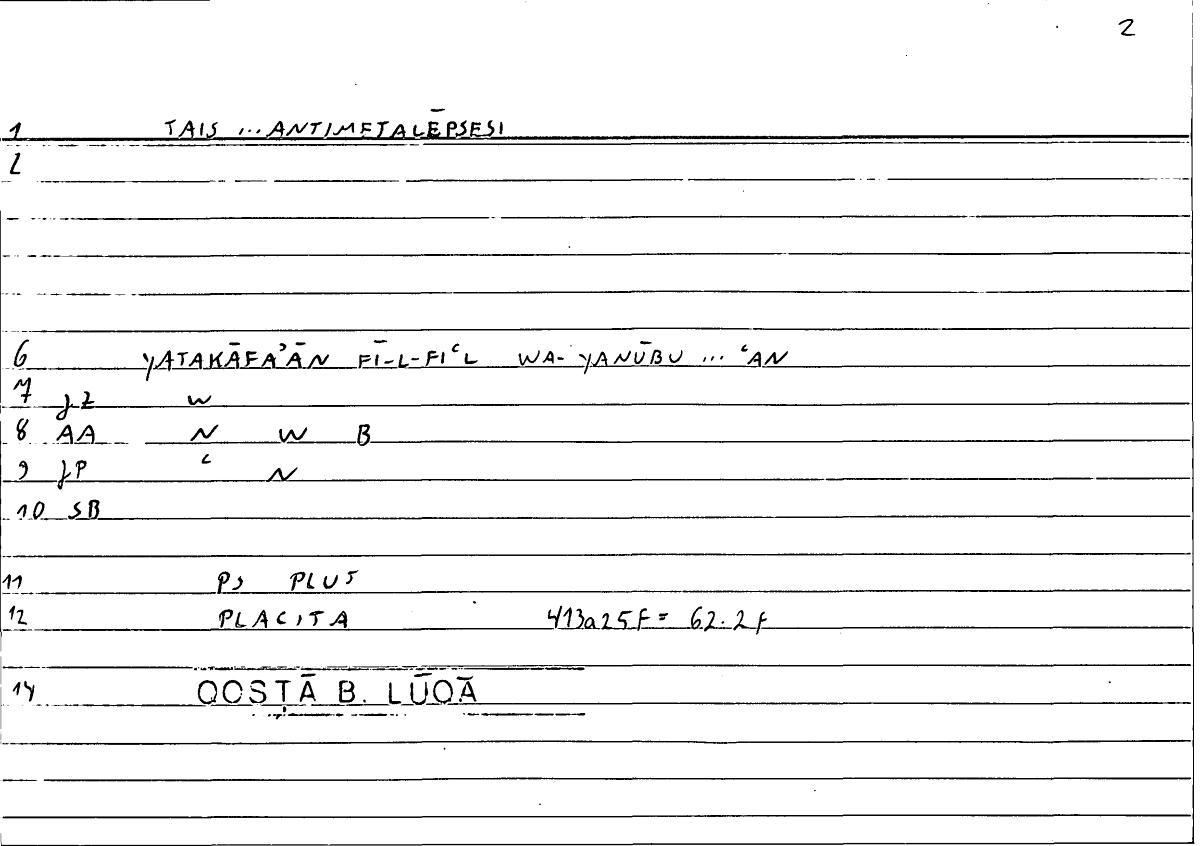 2
1 TAIS ... ANTIMETALĒPSESI
2
6 YATAKĀFAʾĀN FĪ-L-FIʿL WA-YANŪBU ... ʿAN
7 JZ W
8 AA N W B
9 JP ʿ N
10 SB
11 PS PLUT
12 PLACITA 413a25f = 62.2f
14 QOSṬĀ B. LŪQĀ